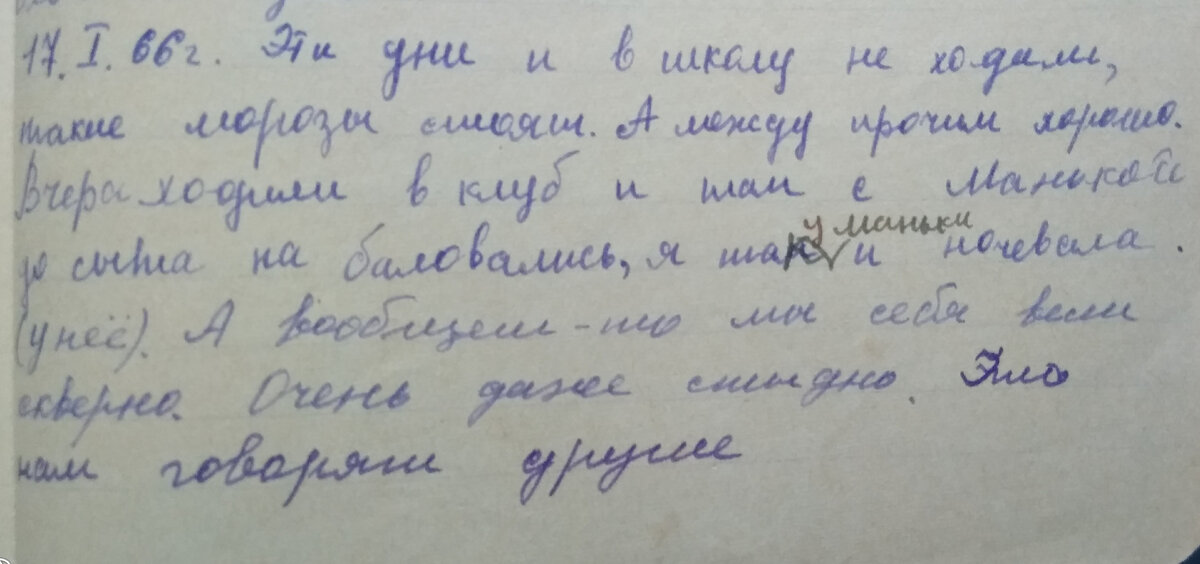 17. I. 66 г. Эти дни и в школу не ходили,
такие морозы стоят. А между прочим хорошо.
Вчера ходили в клуб и там с Манькой
до сыта на баловались, я так у Маньки и ночевала.
(у неё). А вообщем-то мы себя вели
скверно. Очень даже стыдно. Это
нам говорят другие